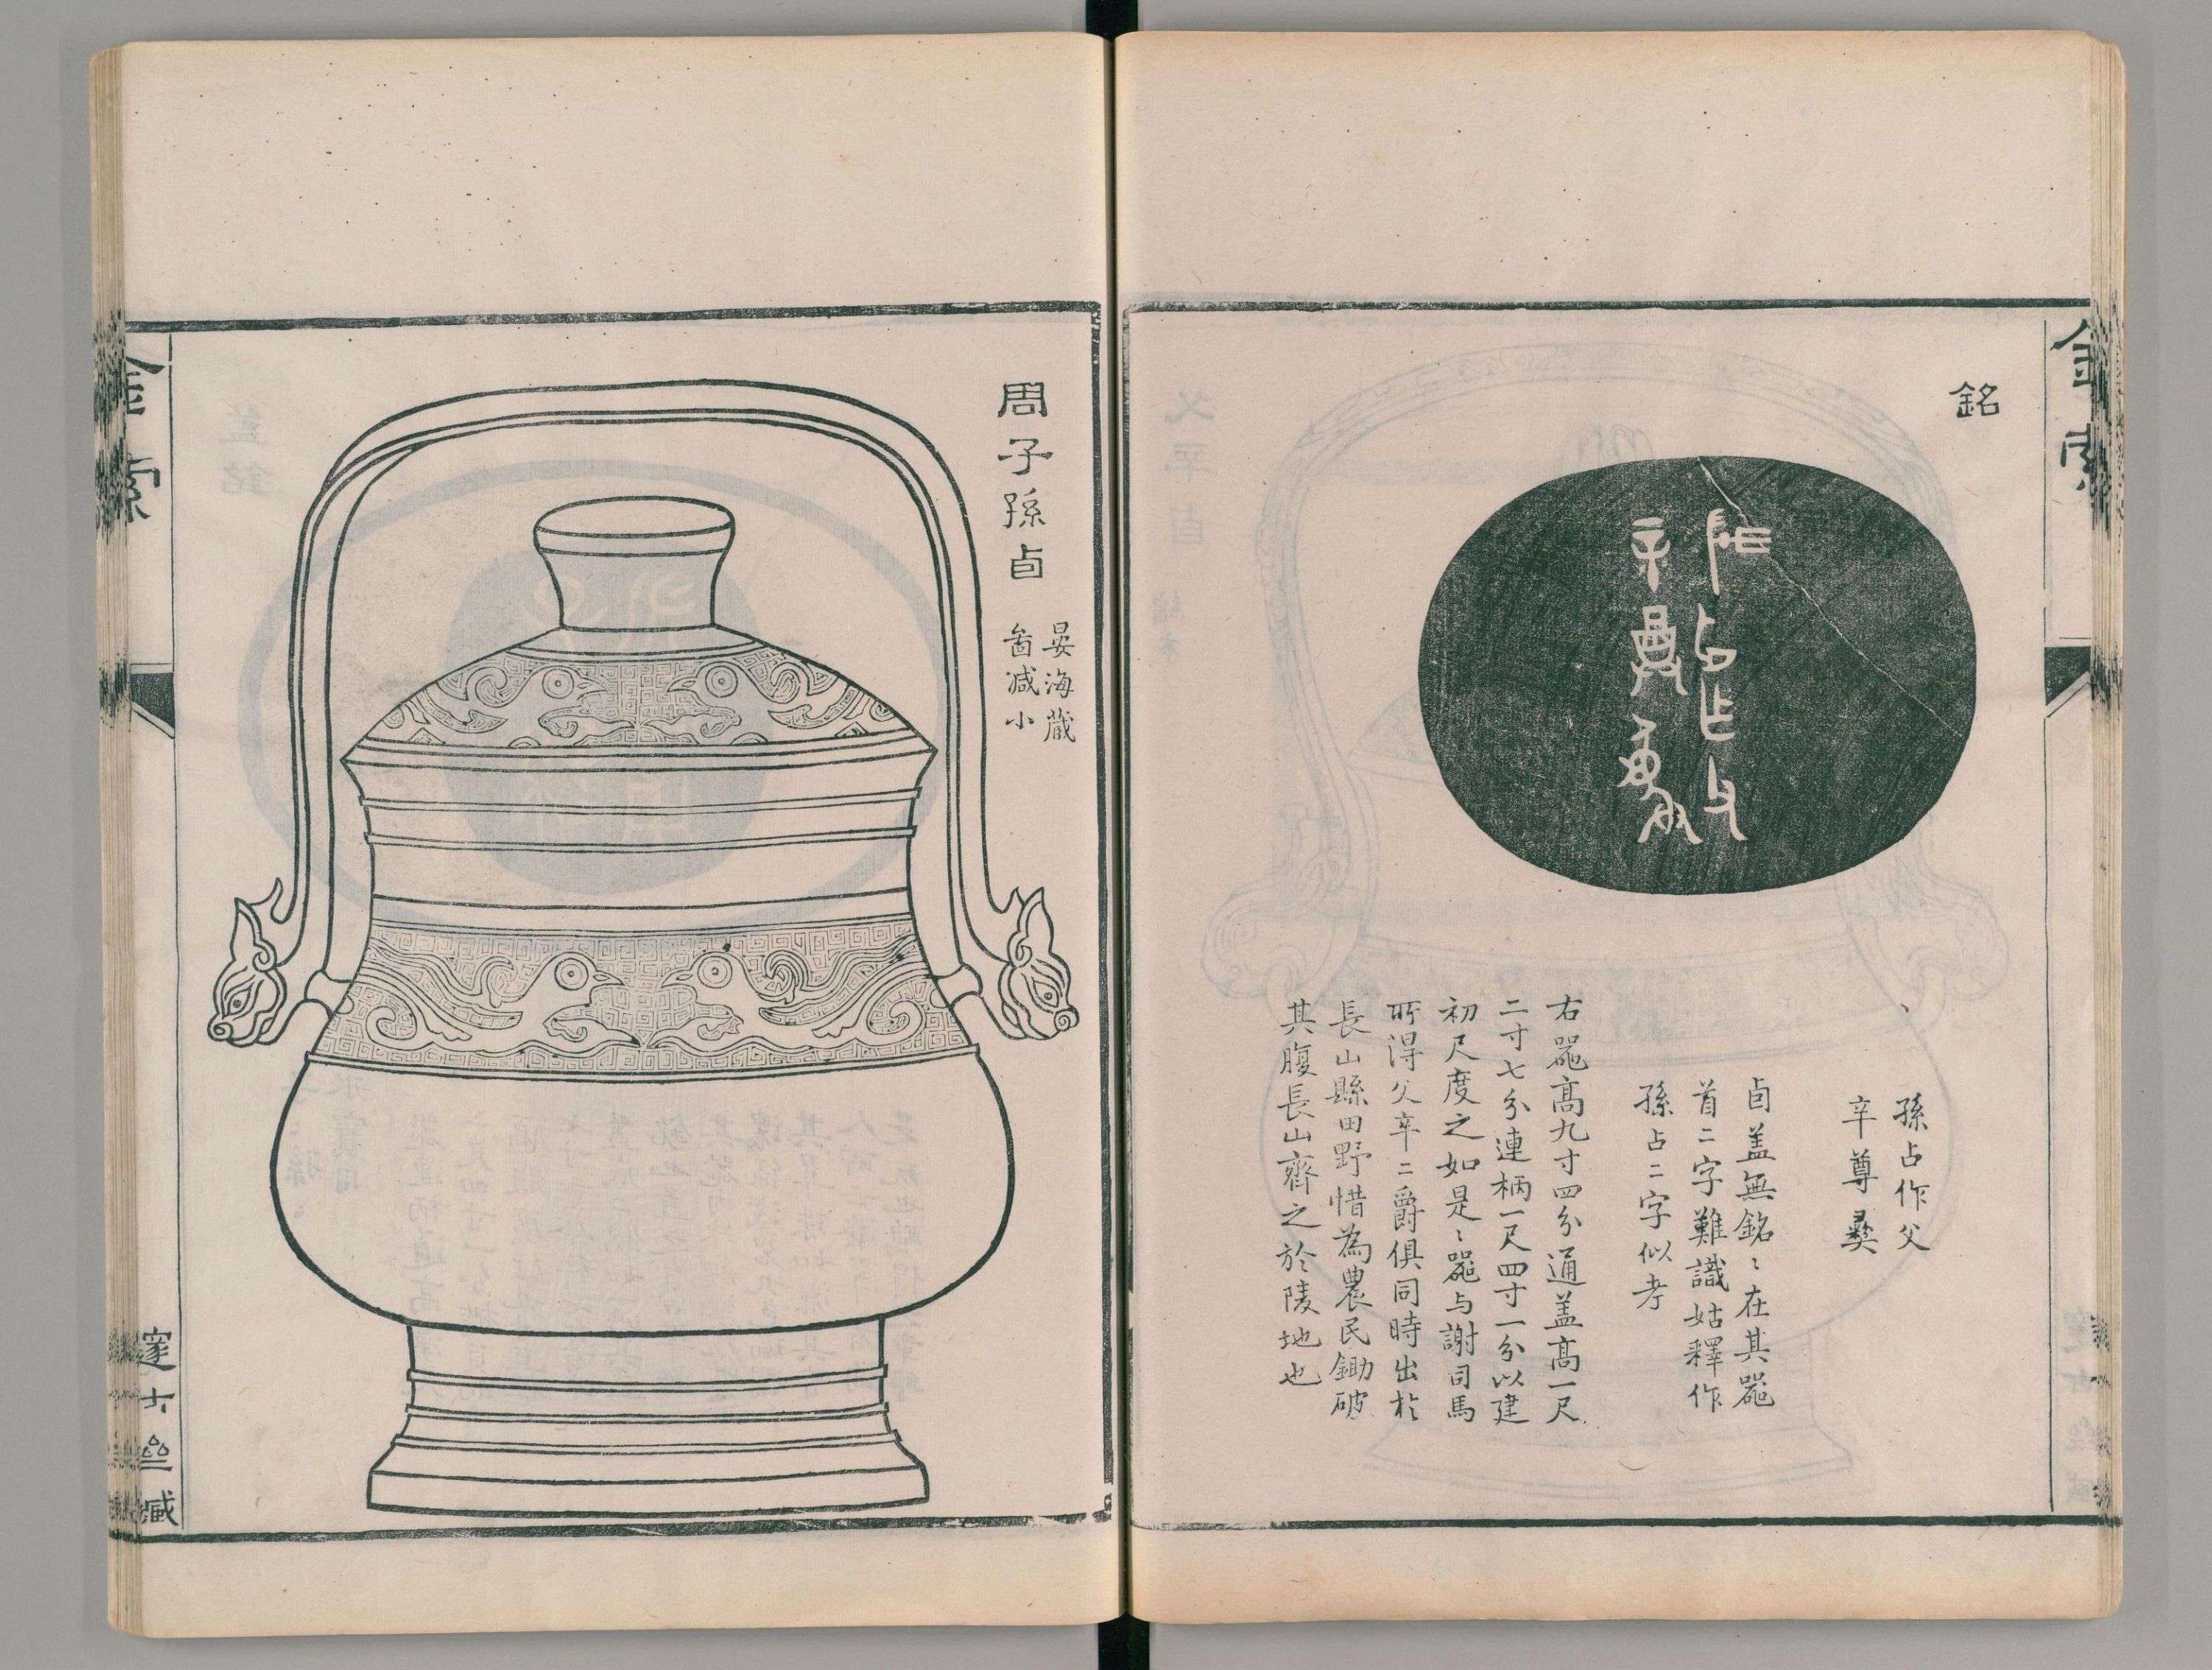 金索
銘
孫占作父
辛尊彝
卣盖無銘〻在其器
首二字難識姑釋作
孫占二字似考
右器高九寸四分通盖高一尺
二寸七分連柄一尺四寸一分以建
初尺度之如是〻器与謝司馬
所得父辛二爵俱同時出於
長山縣田野惜為農民鋤破
其腹長山齊之於陵地也
周子孫卣
晏海蔵
啚減小
金索
邃古齋臧